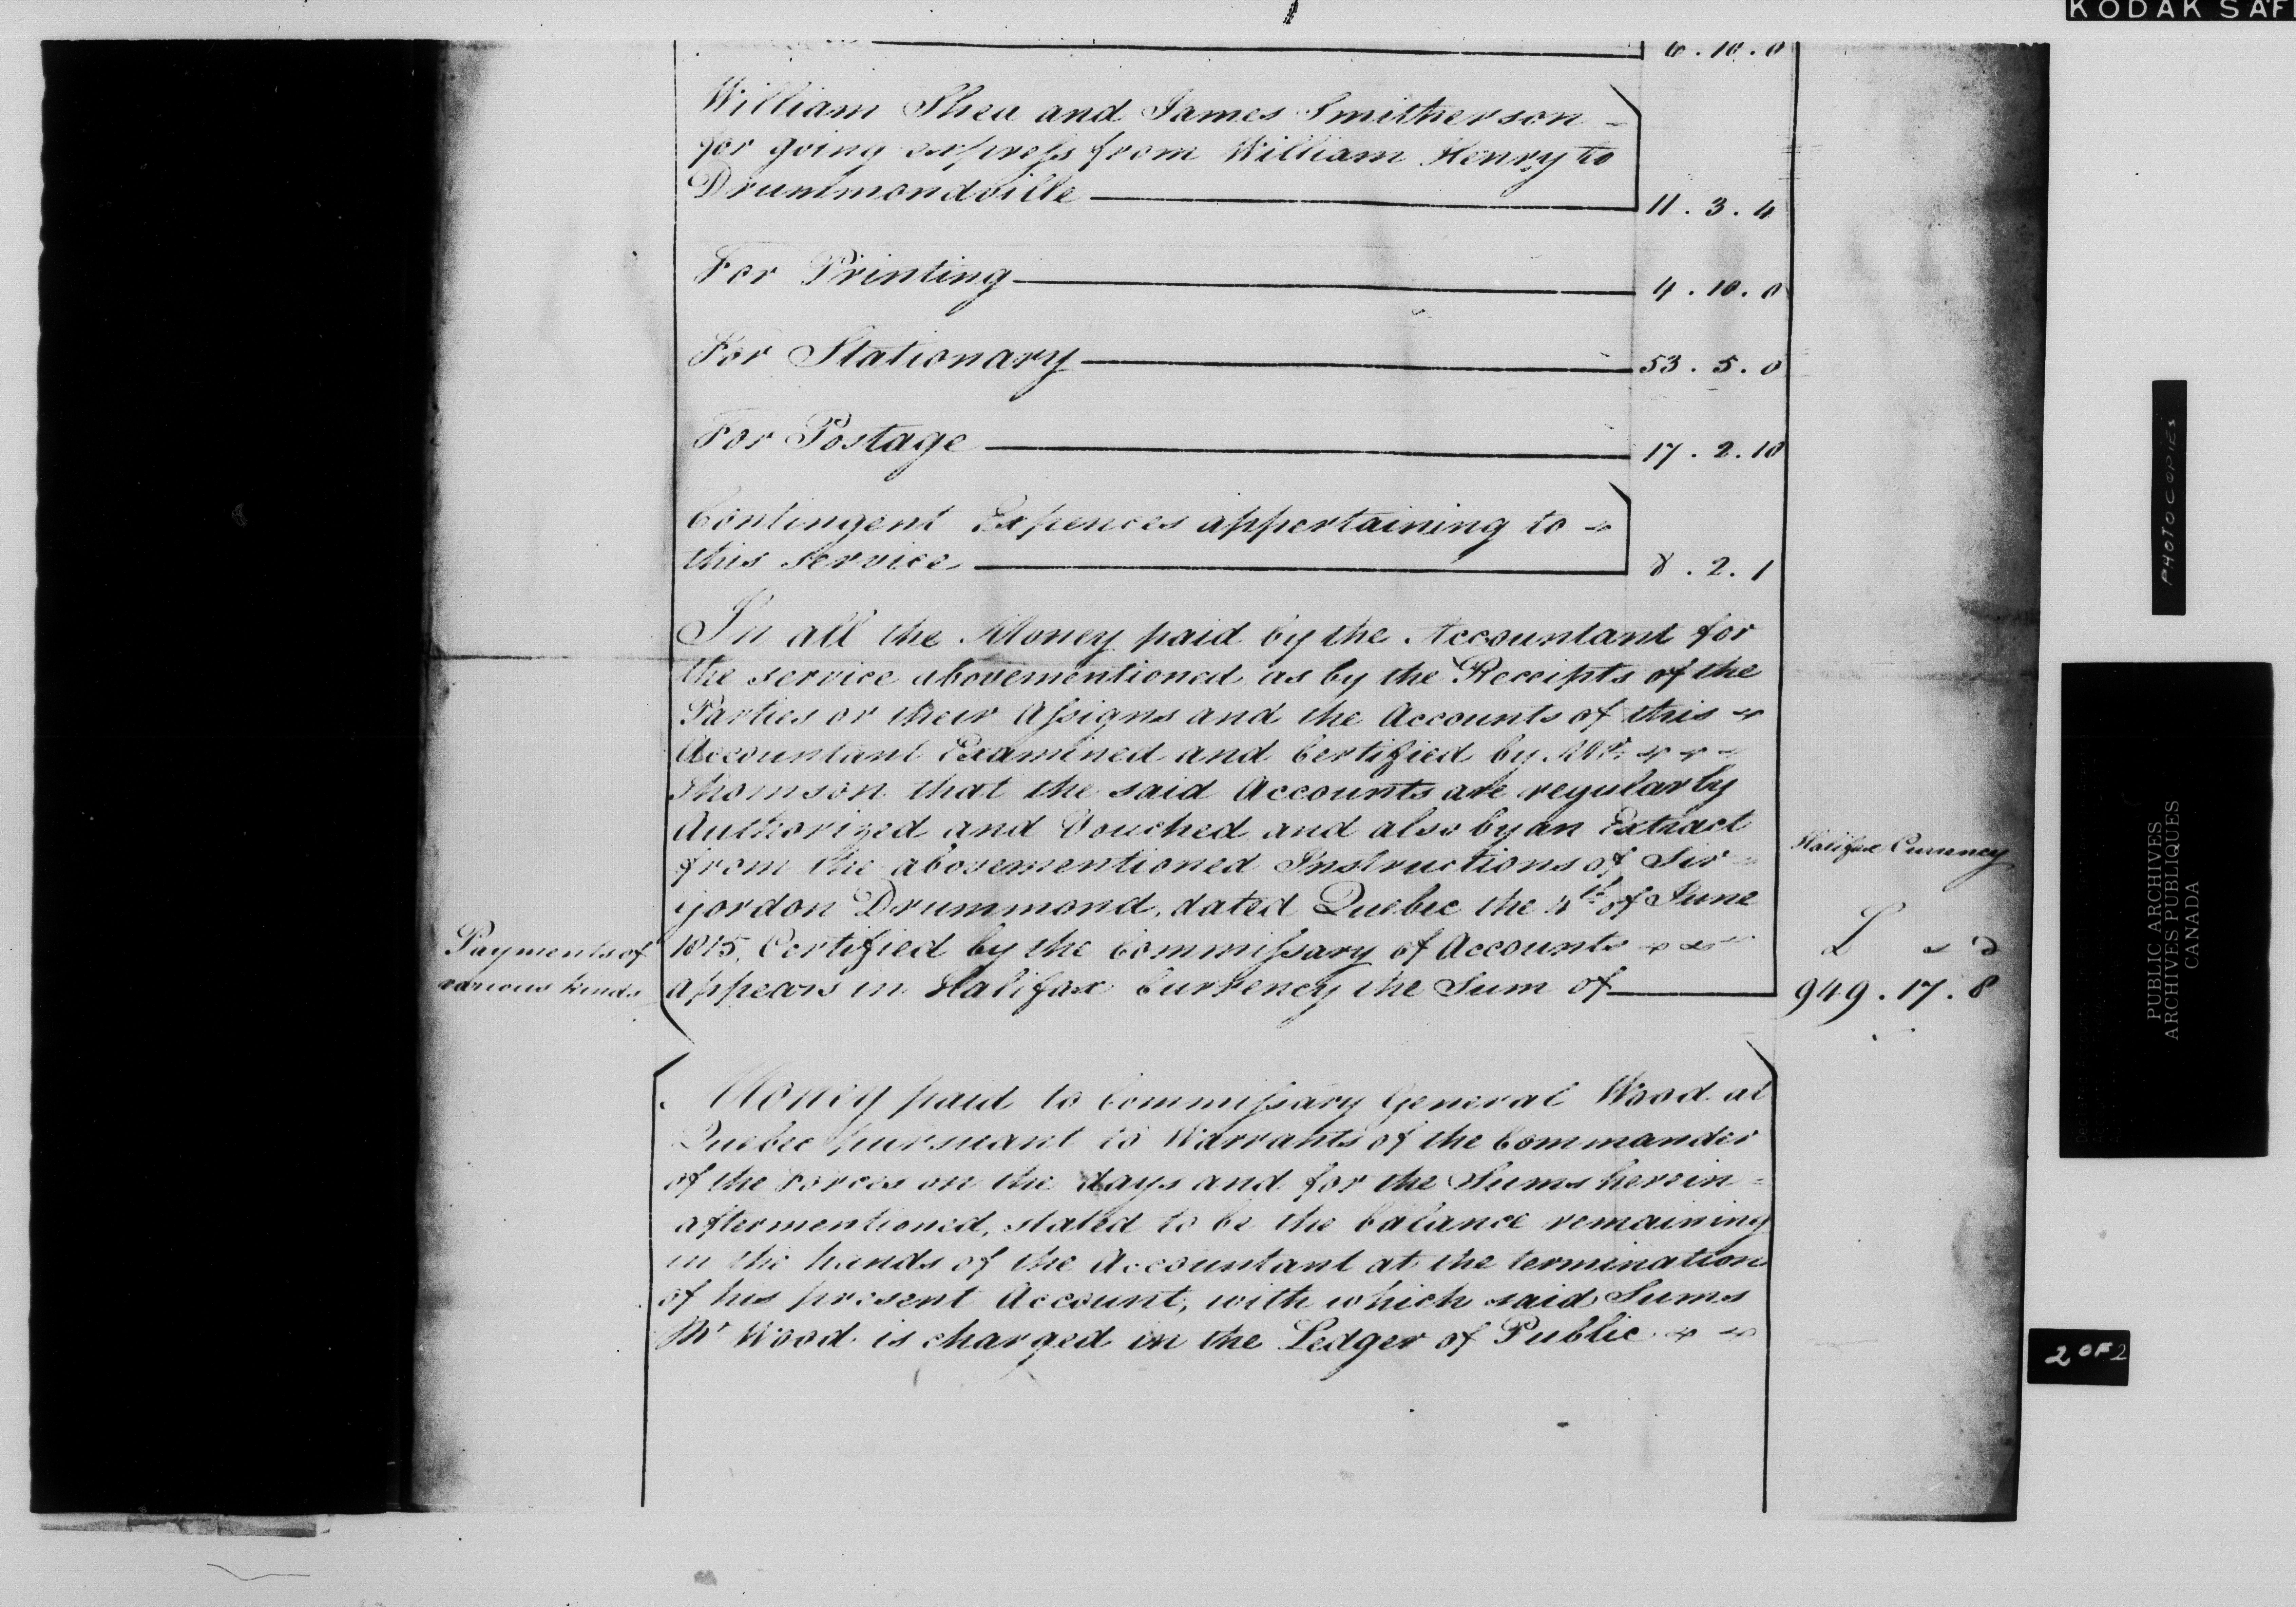 KODAK SAF
6 . 10 . 0
William Shea and James Smitherson -
for going express from William Henry to
Drummondville 11 . 3 . 4
For Printing 4 . 10 . 0
For Stationary 53 . 5 . 0
For Postage 17 . 2 . 10
Contingent Expences appertaining to
this service 8 . 2 . 1
In all the Money paid by the Accountant for
the service abovementioned as by the Receipts of the
Parties or their Assigns and the Accounts of this
Accountant Examined and Certified by Mr.
Thomson that the said Accounts are regularly
Authorized and Vouched and also by an Extract
from the abovementioned Instructions of Sir
Gordon Drummond, dated Quebec the 4th of June
1815, Certified by the Commissary of Accounts
appears in Halifax Currency the Sum of
Payments of
various kinds
Halifax Currency
£ s d
949 . 17 . 8
Money paid to Commissary General Wood at
Quebec pursuant to Warrants of the Commander
of the Forces on the days and for the Sums herein =
aftermentioned, stated to be the balance remaining
in the hands of the Accountant at the termination
of his present Account, with which said Sums
Mr Wood is charged in the Ledger of Public
PHOTOCOPIES
PUBLIC ARCHIVES
ARCHIVES PUBLIQUES
CANADA
2 OF 2